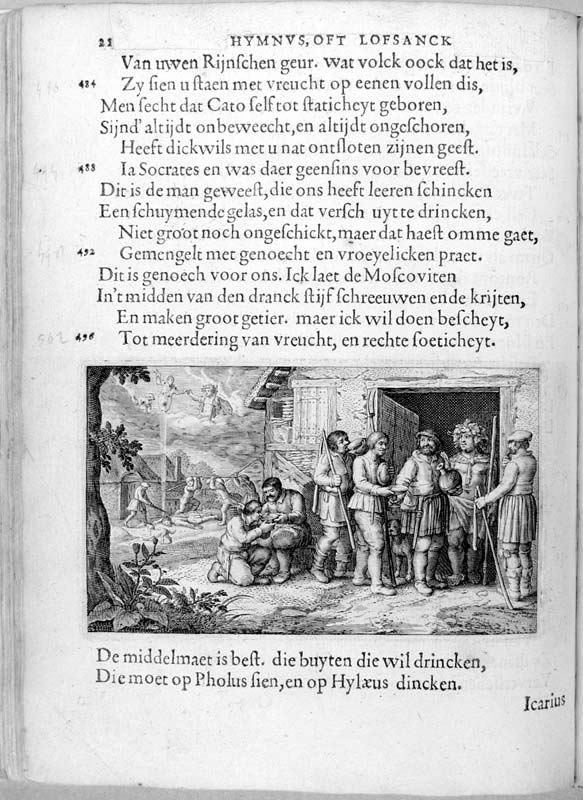 22 HYMNVS, OFT LOFSANCK
Van uwen Rijnschen geur. wat volck oock dat het is,
484 Zy sien u staen met vreucht op eenen vollen dis,
Men secht dat Cato self tot staticheyt geboren,
Sijnd' altijdt onbeweecht, en altijdt ongeschoren,
Heeft dickwils met u nat ontsloten zijnen geest.
488 Ia Socrates en was daer geensins voor bevreest.
Dit is de man geweest, die ons heeft leeren schincken
Een schuymende gelas, en dat versch uyt te drincken,
Niet groot noch ongeschickt, maer dat haest omme gaet,
492 Gemengelt met genoecht en vroeyelicken praet.
Dit is genoech voor ons. Ick laet de Moscoviten
In't midden van den dranck stijf schreeuwen ende krijten,
En maken groot getier. maer ick wil doen bescheyt,
496 Tot meerdering van vreucht, en rechte soeticheyt.
De middelmaet is best. die buyten die wil drincken,
Die moet op Pholus sien, en op Hylæus dincken.
Icarius